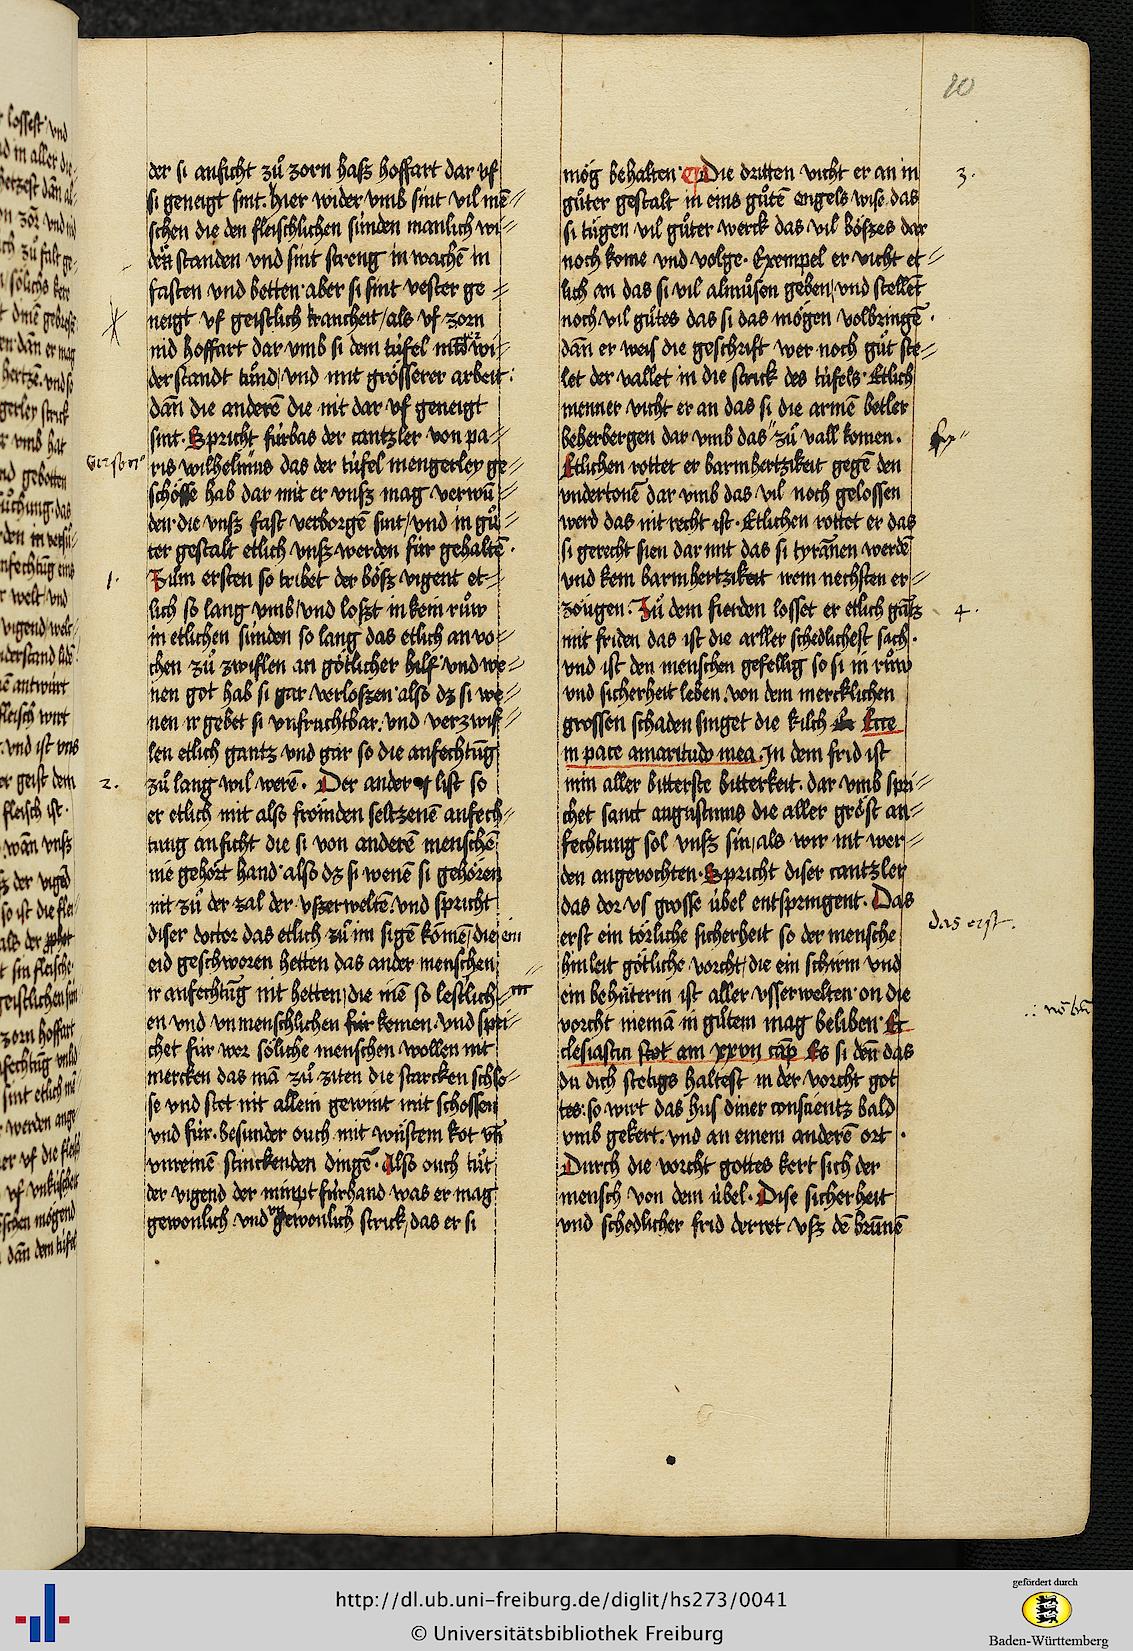 20
der si anficht zů zorn hasz hoffart dar vf
si geneigt sint. hier wider vmb sint vil mē⸗
schen die den fleischlichen sünden manlich wi⸗
den standen vnd sint streng in wachē in
fasten vnd betten aber si sint vester ge⸗
neigt vf geistlich kranckeit / als vf zorn
nid hoffart dar vmb si dem tüfel wi⸗
derstandt tůnd / vnd mit grösserer arbeit
dañ die anderē die nit dar vf geneigt
sint. Spricht fürbas der cantzler von pa⸗
Gerson
ris wilhelmus das der tüfel mengerley ge⸗
schösse hab dar mit er vnsz mag verwū⸗
den die vnsz fast verborgē sint / vnd in gů⸗
ter gestalt etlich vnsz werden für gehaltē.
1.
Zům ersten so tribet der bösz vigent et⸗
lich so lang vmb / vnd loszt in kein růw
in etlichen sünden so lang das etlich an vo⸗
chen zů zwiflen an götlicher hilf vnd we⸗
nen got hab si gar verloszen also dz si we⸗
nen ir gebet si vnfruchtbar. vnd verzwif⸗
len etlich gantz vnd gar so die anfechtūg
2.
zů lang wil werē. Der ander list so
er etlich mit also frömden seltzenē anfech⸗
tung anficht die si von anderē menschē
nie gehört hand also dz si wenē si gehören
nit zů der zal der vszerweltē. vnd spricht
diser doctor das etlich zů im sigē komē / die ein
eid geschworen hetten das ander menschen
ir anfechtūg nit hetten / die inē so lestlich⸗
en vnd vnmenschlichen für komen. vnd spri⸗
chet für wor söliche menschen wollen nit
mercken das mā zů ziten die starcken schlo⸗
se vnd stet nit allein gewint mit schossen
vnd für. besunder ouch mit wüstem kot vñ
vnreinē stinckenden dingē. Also ouch tůt
der vigend der nimpt fürhand was er mag
gewonlich vnd vngewonlich strick / das er si
mög behalten. Die dritten vicht er an in
3.
gůter gestalt in eins gůtē engels wise das
si tügen vil gůter werck das vil böszes dar
noch kome vnd volge. Exempel er vicht et⸗
lich an das si vil almůsen geben / vnd stellet
noch vil gůtes das si das mögen volbringē.
dañ er weis die geschrift wer noch gůt ste⸗
let der vallet in die strick des tüfels. Etlich
menner vicht er an das si die armē betler
beherbergen dar vmb das zů vall komen.
Etlichen rottet er barmhertzikeit gegē den
vndertonē dar vmb das vil noch gelossen
werd das nit recht ist. Etlichen rottet er das
si gerecht sien dar mit das si tyrānen werdē
vnd kein barmhertzikeit irem nechsten er⸗
zöugen. Zů dem fierden losset er etlich gātz
4.
mit friden das ist die aller schedlichest sach.
vnd ist den menschen gefellig so si in růw
vnd sicherheit leben. von dem mercklichen
grossen schaden singet die kilch Ecce
in pace amaritudo mea. In dem frid ist
min aller bitterste bitterkeit. dar vmb spri⸗
chet sanct augustinus die aller gröst an⸗
fechtung sol vnsz sin / als wir nit wer⸗
den angevochten. Spricht diser cantzler
das dor vs grosse übel entspringent. Das
das erst.
erst ein törliche sicherheit so der mensche
hinleit götliche vorcht / die ein schirm vnd
ein behüterin ist aller vsserwelten on die
vorcht niemā in gůtem mag beliben. Ec
clesiastici stot am xxvii cap Es si deñ das
du dich stetigs haltest in der vorcht got
tes: so wirt das hus diner conscientz bald
vmb gekert. vnd an einem anderē ort.
Durch die vorcht gottes kert sich der
mensch von dem übel. Dise sicherheit
vnd schedlicher frid derret vsz dē brunnē
http://dl.ub.uni-freiburg.de/diglit/hs273/0041
© Universitätsbibliothek Freiburg
gefördert durch
Baden-Württemberg